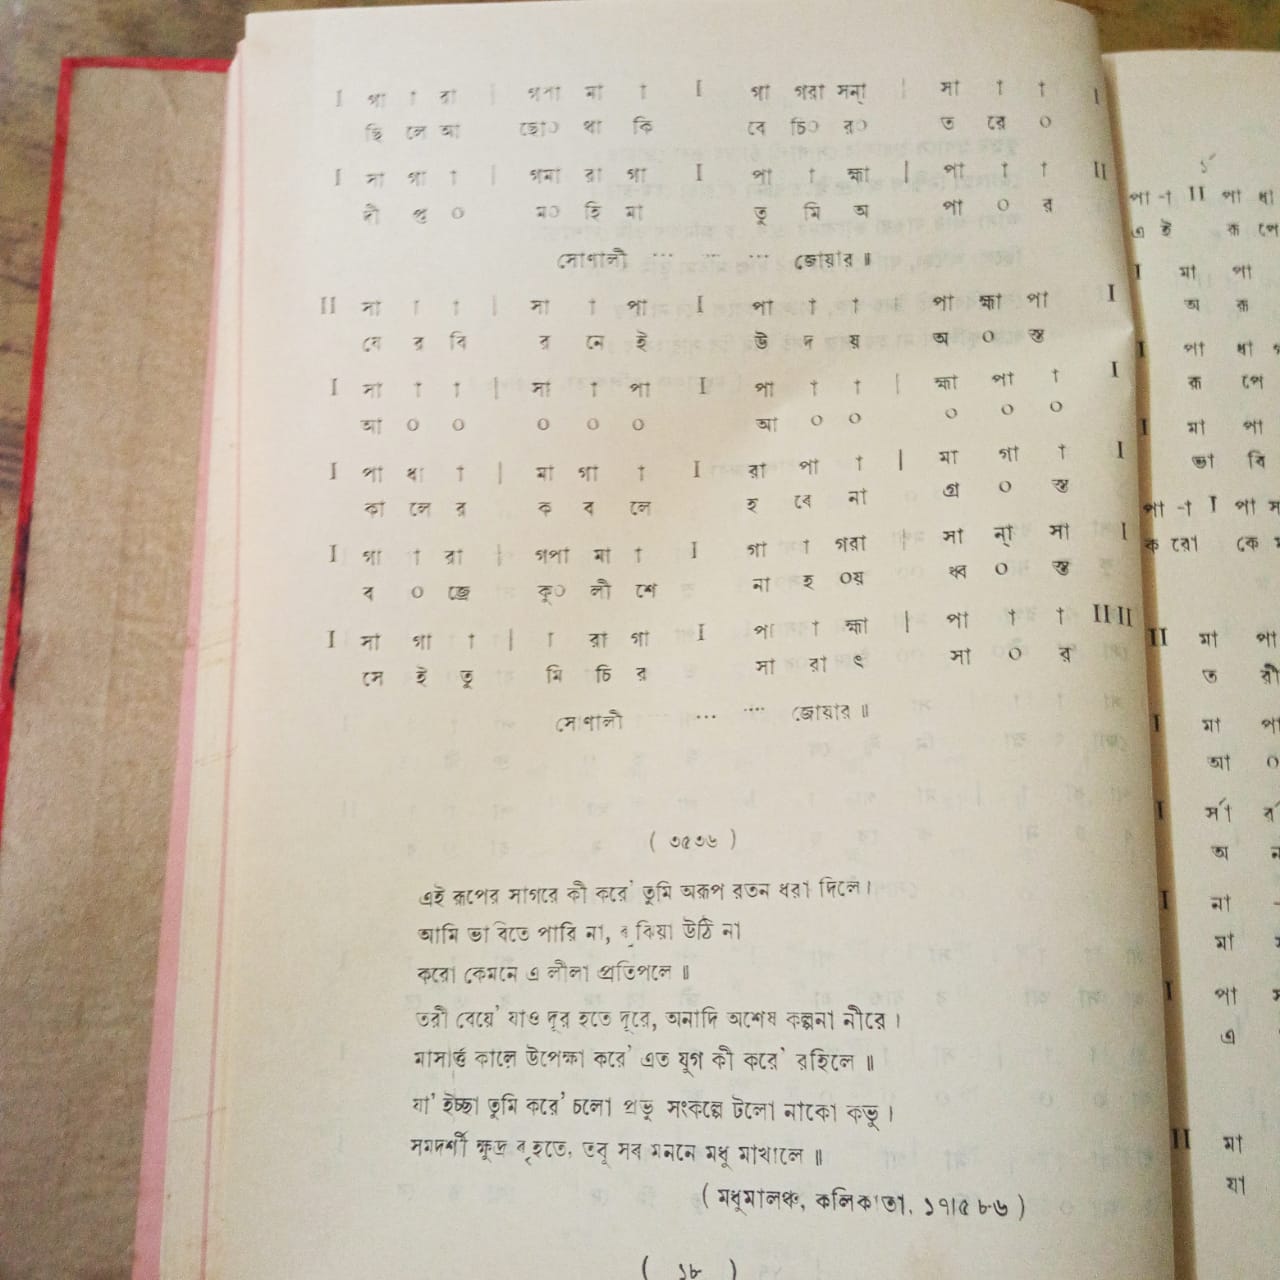 I গা া রা | গপা মা া I গা গরা সন্‌া | সা া া I
ছি লে আ ছো০ থা কি বে চি০ র০ ত রে ০
I সা গা া | গমা রা গা I পা া হ্মা | পা া া II
দী প্ত ০ ম০ হি মা তু মি অ পা ০ র
সোণালী ... ... ... জোয়ার ॥
II সা া া | সা া পা I পা া া | পা হ্মা পা I
যে র বি র নে ই উ দ য় অ ০ স্ত
I সা া া | সা া পা I পা া া | হ্মা পা া I
আ ০ ০ ০ ০ ০ আ ০ ০ ০ ০ ০
I পা ধা া | মা গা া I রা পা া | মা গা া I
কা লে র ক ব লে হ বে না গ্র ০ স্ত
I গা া রা | গপা মা া I গা া গরা | সা ন্‌া সা I
ব ০ জ্রে কু০ লী শে না হ ০য় ধ্ব ০ স্ত
I সা গা া | া রা গা I পা া হ্মা | পা া া II II
সে ই তু মি চি র সা রা ৎ সা ০ র
সোণালী ... .... জোয়ার ॥
( ৩৫৩৬ )
এই রূপের সাগরে কী করে' তুমি অরূপ রতন ধরা দিলে।
আমি ভাবিতে পারি না, বুঝিয়া উঠি না
করো কেমনে এ লীলা প্রতিপলে ॥
তরী বেয়ে' যাও দূর হতে দূরে, অনাদি অশেষ কল্পনা নীরে।
মাসর্ত্তু কালে উপেক্ষা করে' এত যুগ কী করে' রহিলে ॥
যা' ইচ্ছা তুমি করে' চলো প্রভু সংকল্পে টলো নাকো কভু।
সমদর্শী ক্ষুদ্র বৃহতে, তবু সব মননে মধু মাখালে ॥
( মধুমালঞ্চ, কলিকাতা, ১৭।৫৮৬ )
( ১৮ )
১´
পা -া II পা ধা
এ ই রূ পে
I মা পা
অ রূ
I পা ধা
রূ পে
I মা পা
ভা বি
পা -া I পা
ক রো কে
II মা পা
ত রী
I মা পা
আ ০
I র্সা
অ
I না
মা
I পা
এ
II মা
যা